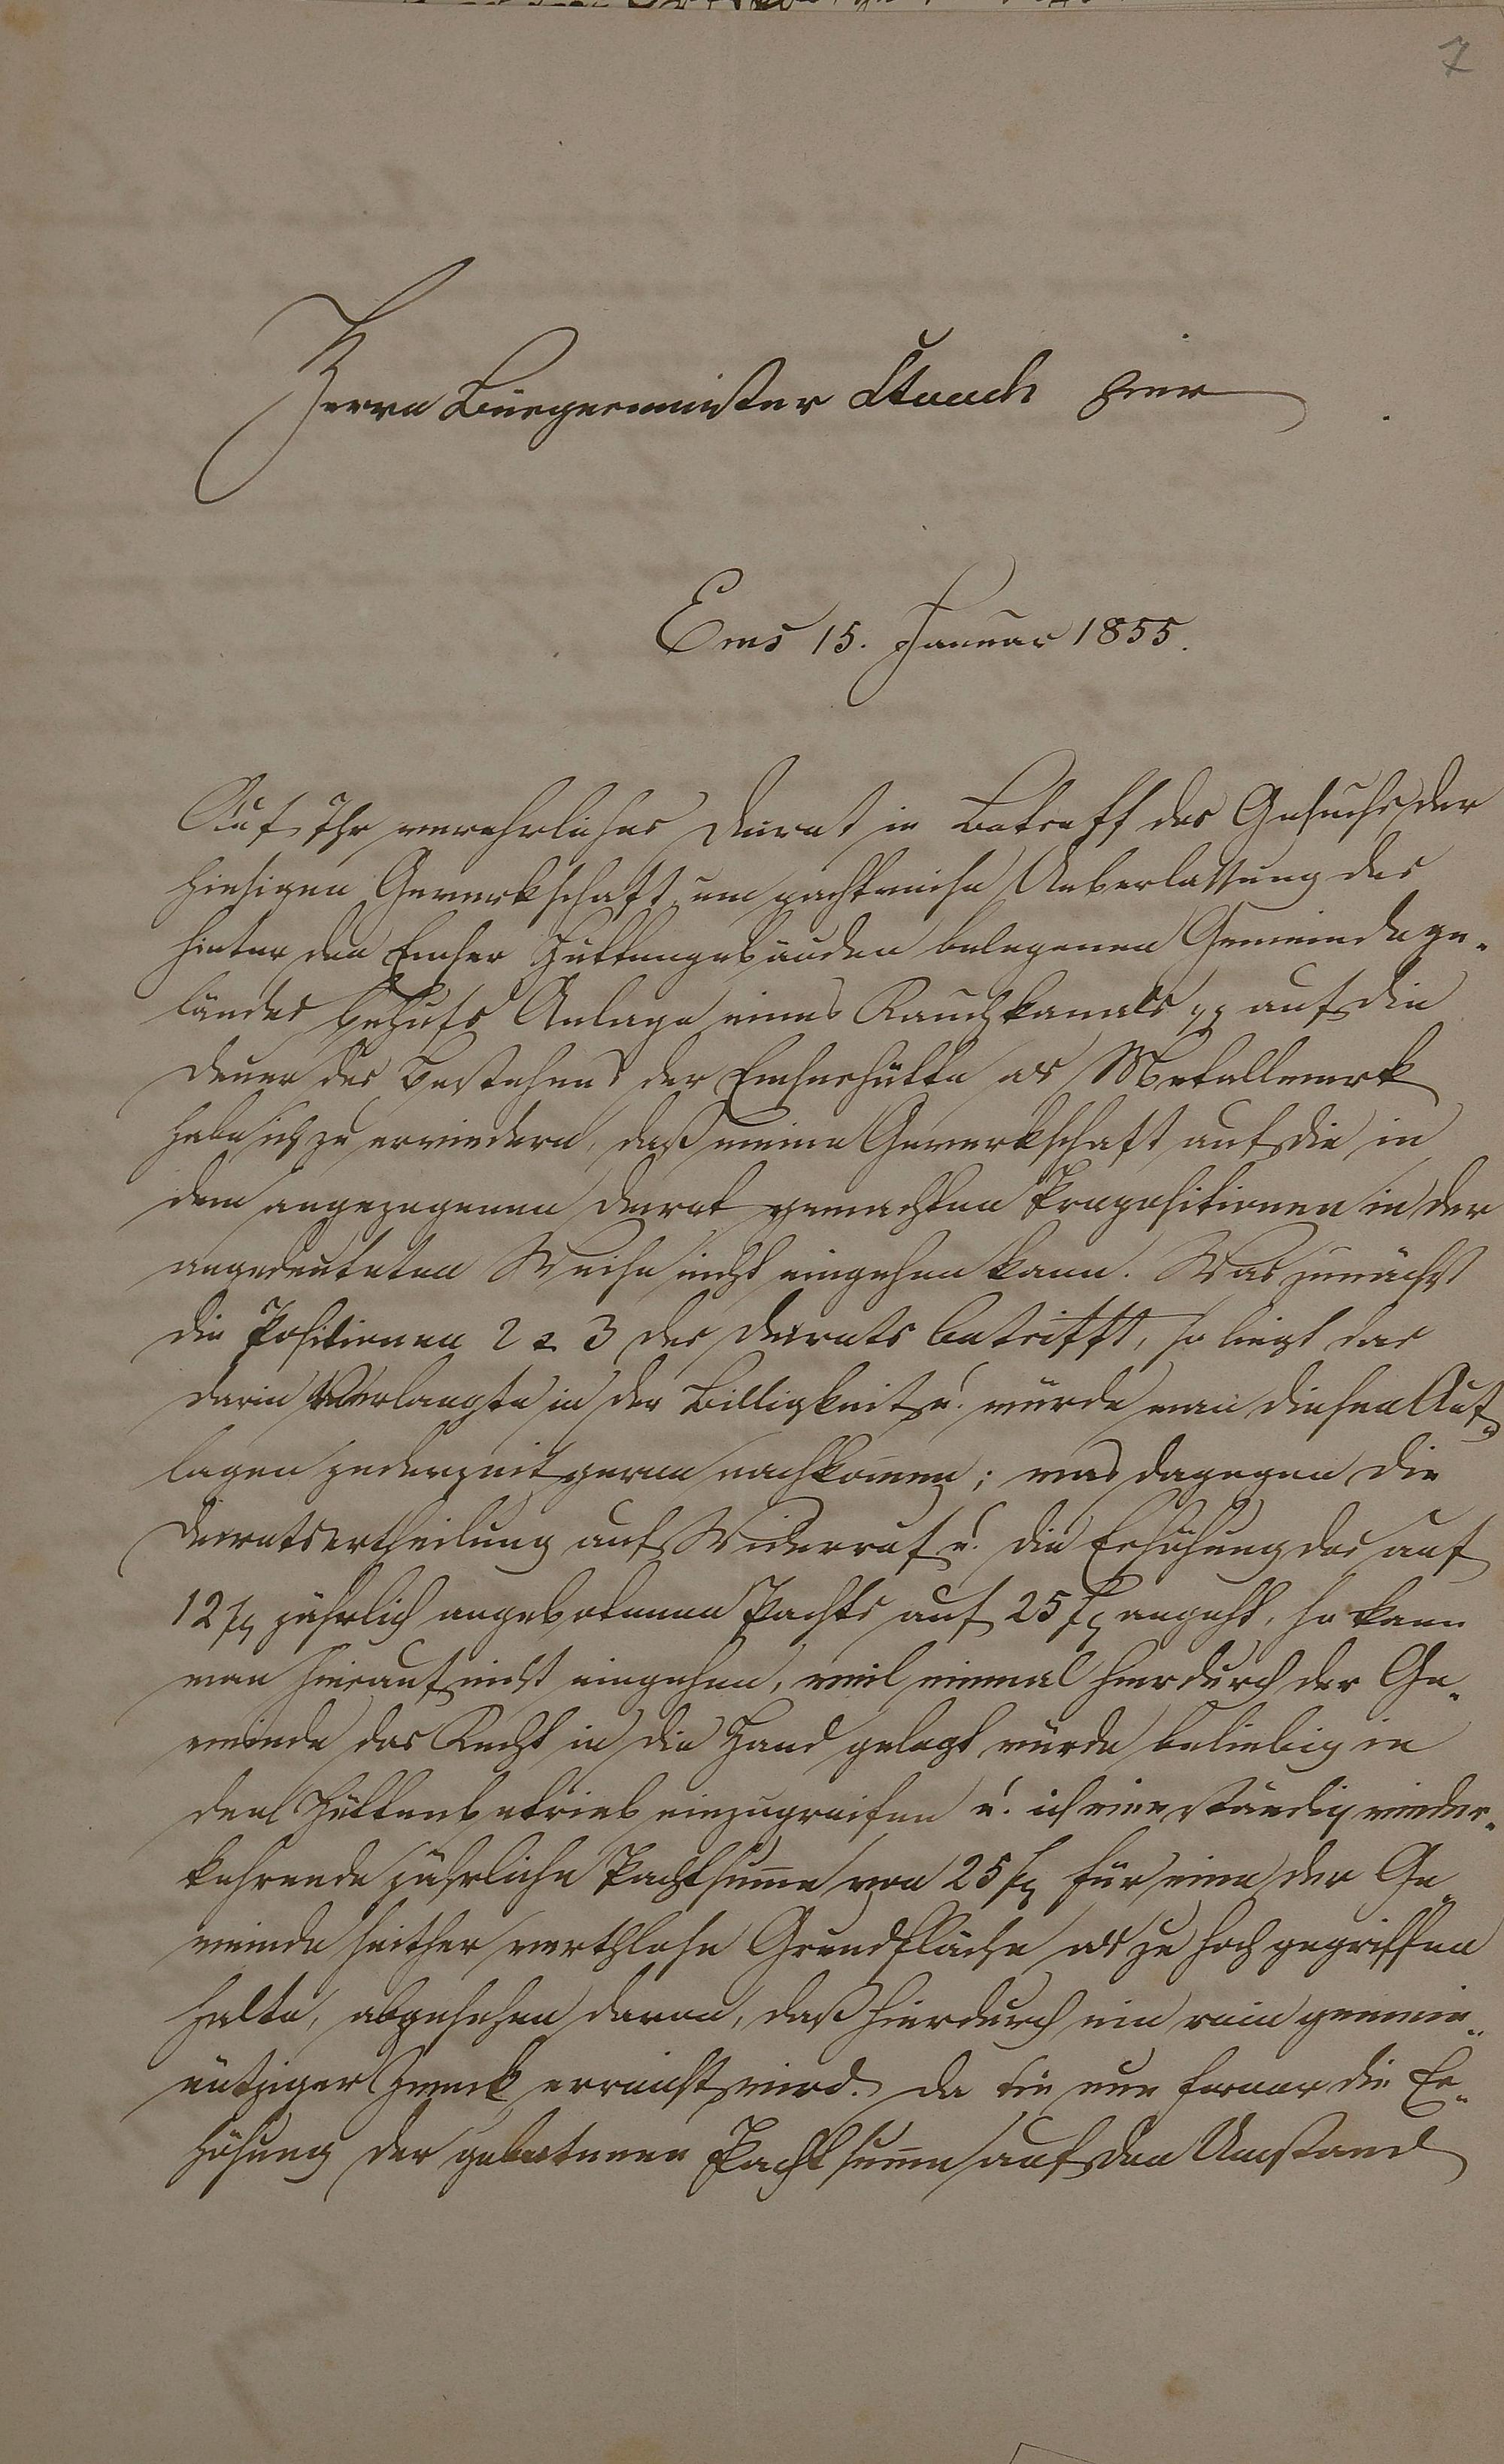 7
Herrn Bürgermeister Stauch hier
Ems 15. Januar 1855.
Auf Ihr verehrliches Decret in Betreff des Gesuchs der
hiesigen Gewerkschaft um pachtweise Ueberlassung des
hinter den Emser Hüttengebäuden belegenen Gemeindege-
ländes behufs Anlage eines Rauchkanals pp auf die
Dauer des Bestehens der Emserhütte als Metallwerk
habe ich zu erwiedern, daß meine Gewerkschaft auf die in
dem angezogenen Decret gemachten Propositionen in der
angedeuteten Weise nicht eingehen kann. Was zunächst
die Positionen 2 & 3 des Decrets betrifft, so liegt das
darin Verlangte in der Billigkeit u. würde man diesen Auf-
lagen jederzeit gerne nachkommen; was dagegen die
Decretsertheilung auf Widerruf u. die Erhöhung des auf
12 fl jährlich angebotenen Pachts auf 25 fl angeht, so kann
man hierauf nicht eingehen, weil einmal hierdurch der Ge-
meinde das Recht in die Hand gelegt würde beliebig in
den Hüttenbetrieb einzugreifen u. ich eine ständig wieder-
kehrende jährliche Pachtsumme von 25 fl für eine der Ge-
meinde seither werthlose Grundfläche als zu hoch gegriffen
halte, abgesehen davon, daß hierdurch ein rein gemein-
nütziger Zweck erreicht wird. Da Sie nun ferner die Er-
höhung der gebotenen Pachtsumme auf den Umstand